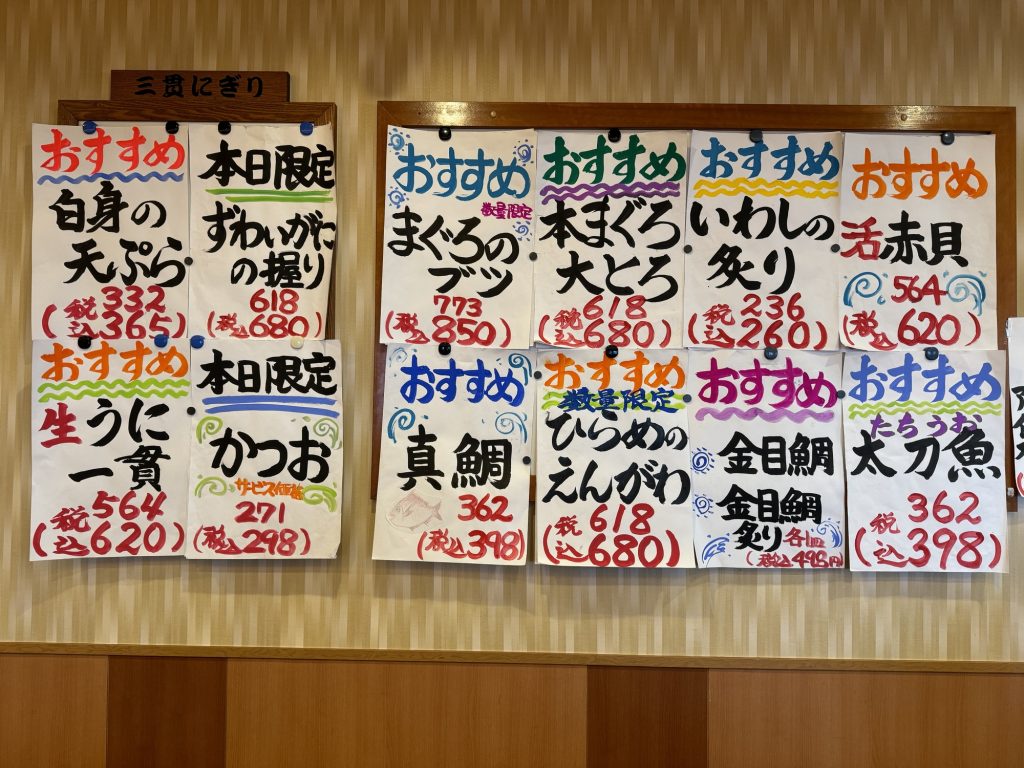 三貫にぎり
おすすめ
白身の
天ぷら
332
(税込365)
本日限定
ずわいがに
の握り
618
(税込680)
おすすめ
生うに
一貫
564
(税込620)
本日限定
かつお
サービス価格
271
(税込298)
おすすめ
数量限定
まぐろの
ブツ
773
(税込850)
おすすめ
本まぐろ
大とろ
618
(税込680)
おすすめ
いわしの
炙り
236
(税込260)
おすすめ
活赤貝
564
(税込620)
おすすめ
真鯛
362
(税込398)
おすすめ
数量限定
ひらめの
えんがわ
618
(税込680)
おすすめ
金目鯛
金目鯛
炙り各1皿
(税込498円)
おすすめ
たちうお
太刀魚
362
(税込398)